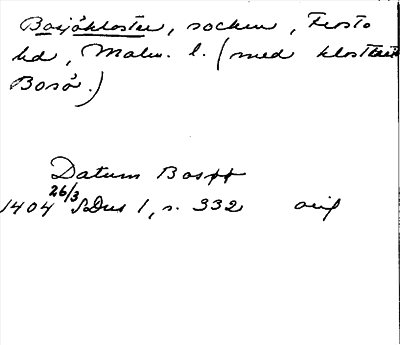 Bosjökloster, socken, Frosta
hd, Malm. l. (med klostret
Bosö.)
Datum Bosøø
1404 26/3 SDns 1, s. 332 orig